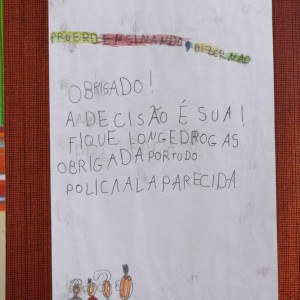 PROERD ENSINANDO DIZER NÃO
OBRIGADO!
A DECISÃO É SUA!
FIQUE LONGEDROGAS
OBRIGADA PORTUDO
POLICIAL APARECIDA